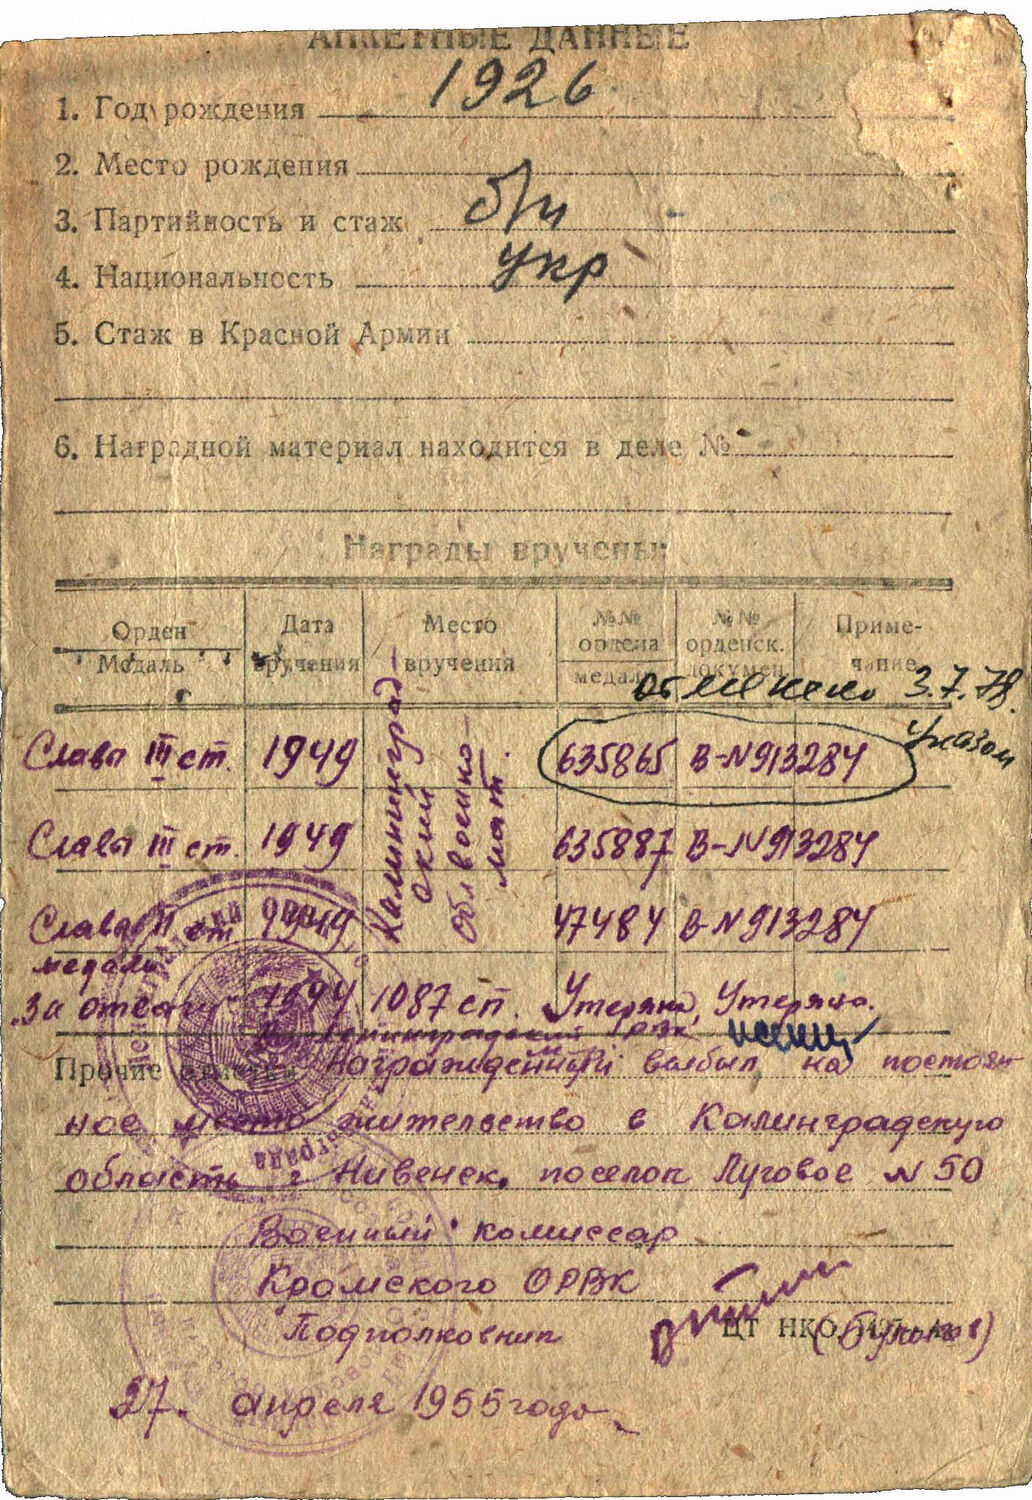 АНКЕТНЫЕ ДАННЫЕ
1. Год рождения 1926
2. Место рождения
3. Партийность и стаж б/п
4. Национальность укр
5. Стаж в Красной Армии
6. Наградной материал находится в деле №
Награды вручены:
Орден Медаль Дата вручения Место вручения №№ ордена медали №№ орденск. докумен. Примечание
отменено 3.7.78.
Указом
Слава III ст. 1949 635865 В-N913284
Слава III ст. 1949 635887 В-N913284
Слава II ст 1949 47484 В-N913284
Калининград-
ский
облвоенко-
мат.
медаль
"За отвагу 1944 1087 сп. Утеряна, Утеряно.
Прочие отметки Награжденный выбыл на постоян
ное место жительство в Калинградскую
область г Нивенск. поселок Луговое N 50
Военный комиссар
Кромского ОРВК
Подполковник
ЦТ НКО
27. апреля 1955 года